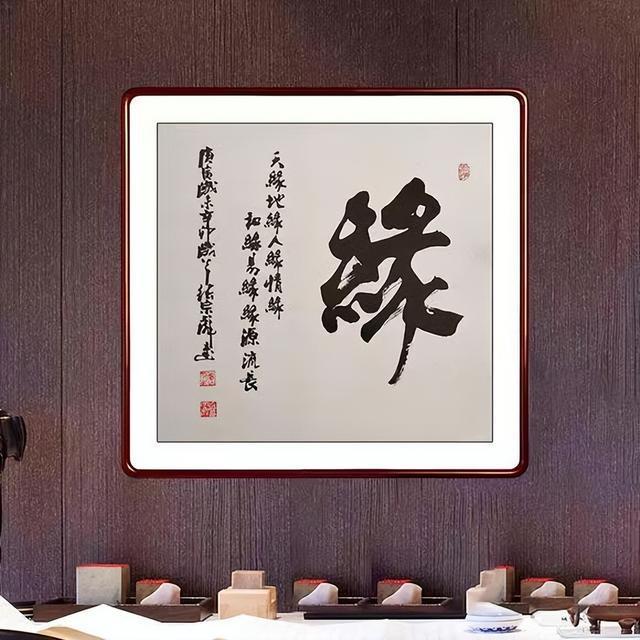 緣
天緣地緣人緣情緣
緣易緣緣源流長
庚寅歲末辛卯歲